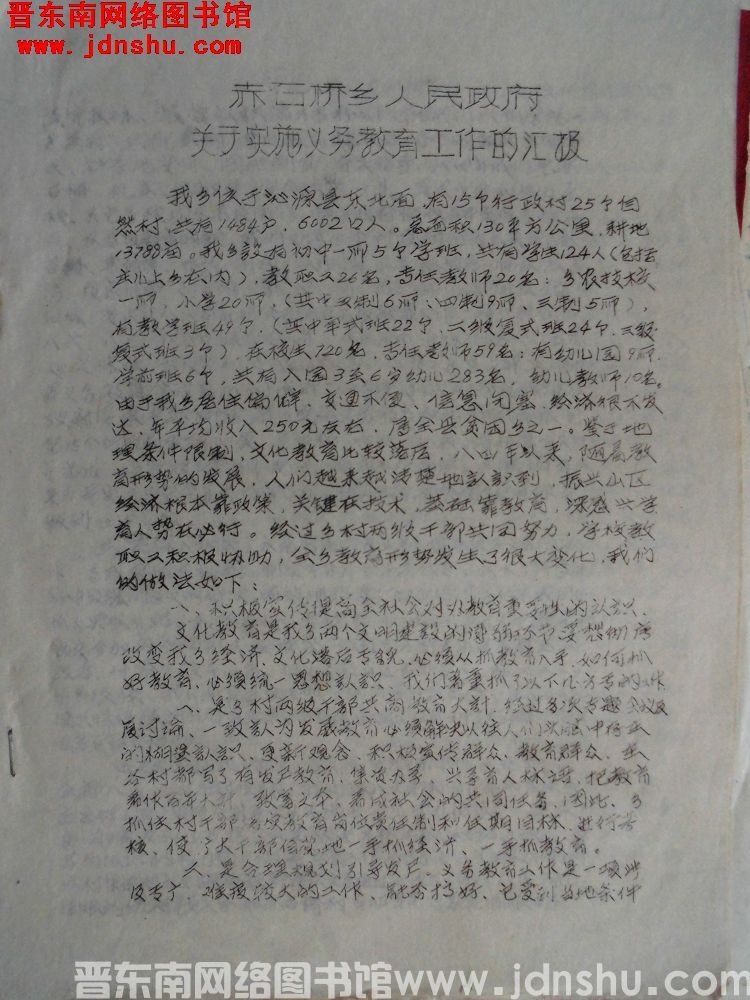 晋东南网络图书馆
www.jdnshu.com
赤石桥乡人民政府
关于实施义务教育工作的汇报
我乡位于沁源县东北面,有15个行政村25个自
然村,共有1484户,6002口人。总面积130平方公里,耕地
13788亩。我乡设有初中一所5个学班,共有学生124人(包括
王儿上乡在内),教职工26名,专任教师20名;乡农技校
一所,小学20所,(其中五制6所、四制9所、三制5所),
有教学班49个,(其中单式班22个,二级复式班24个,三级
复式班3个),在校生720名,专任教师59名;有幼儿园9所
学前班6个,共有入园3至6岁幼儿283名,幼儿教师10名。
由于我乡居住偏僻,交通不便、信息闭塞,经济很不发
达,年平均收入250元左右,属全县贫困乡之一。鉴于地
理条件限制,文化教育比较落后,八四年以来,随着教
育形势的发展,人们越来越清楚地认识到,振兴山区
经济根本靠政策,关键在技术,基础靠教育,深感兴学
育人势在必行。经过乡村两级干部共同努力,学校教
职工积极协助,全乡教育形势发生了很大变化,我们
的做法如下:
一、积极宣传提高全社会对教育重要性的认识、
文化教育是我乡两个文明建设的薄弱环节要想彻底
改变我乡经济、文化落后专貌,必须从抓教育入手,如何抓
好教育、必须统一思想认识、我们着重抓了以下几方专的工作
一、是乡村两级干部共商教育大计,经过多次专题会议
讨论、一致认为发展教育必须解决以往人们头脑中存在
的糊涂认识、更新观念、积极宣传群众、教育群众、在
各村都写了有发展教育、集资办学、兴学育人标语,把教育
看作百年大计,致富之本、看成社会的共同任务,因此、乡
抓住村干部 教育岗位责任制和任期目标,进行考
核、使广大干部自觉地一手抓经济、一手抓教育。
二、是合理规划引导发展、义务教育工作是一项涉
及专广,难度较大的工作、能否搞好、它受到当地条件
晋东南网络图书馆www.jdnshu.com